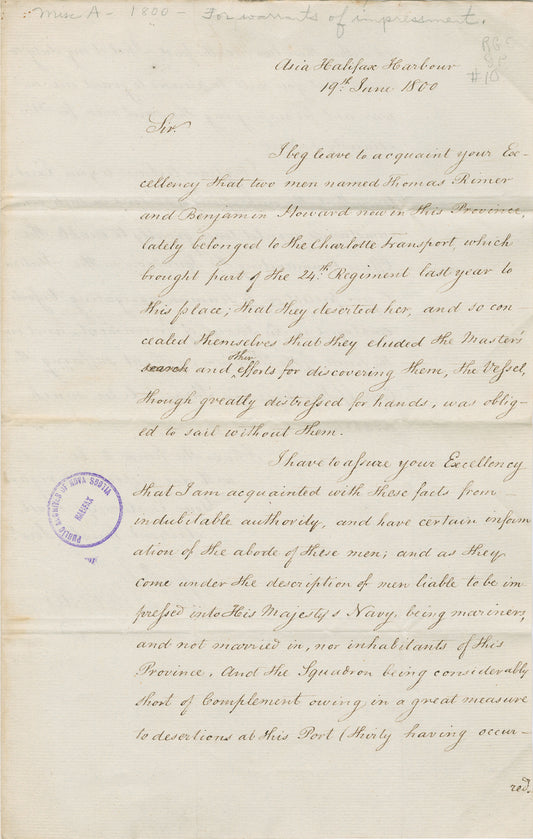 Misc A - 1800 - For warrants of impressment.
RG 5
#10
Asia Halifax Harbour
19th June 1800
Sir
I beg leave to acquaint your Ex-
cellency that two men named Thomas Rimer
and Benjamin Howard now in this Province,
lately belonged to the Charlotte Transport, which
brought part of the 24th Regiment last year to
this place; that they deserted her, and so con-
cealed themselves that they eluded the Master's
search and other efforts for discovering them, the Vessel,
though greatly distressed for hands, was oblig-
ed to sail without them.
I have to assure your Excellency
that I am acquainted with these facts from
indubitable authority, and have certain inform
ation of the abode of these men; and as they
come under the description of men liable to be im
pressed into His Majesty's Navy, being mariners,
and not married in, nor inhabitants of this
Province, And the Squadron being considerably
short of Complement owing in a great measure
to desertions at this Port (thirty having occur-
red.
PUBLIC ARCHIVES OF NOVA SCOTIA
HALIFAX